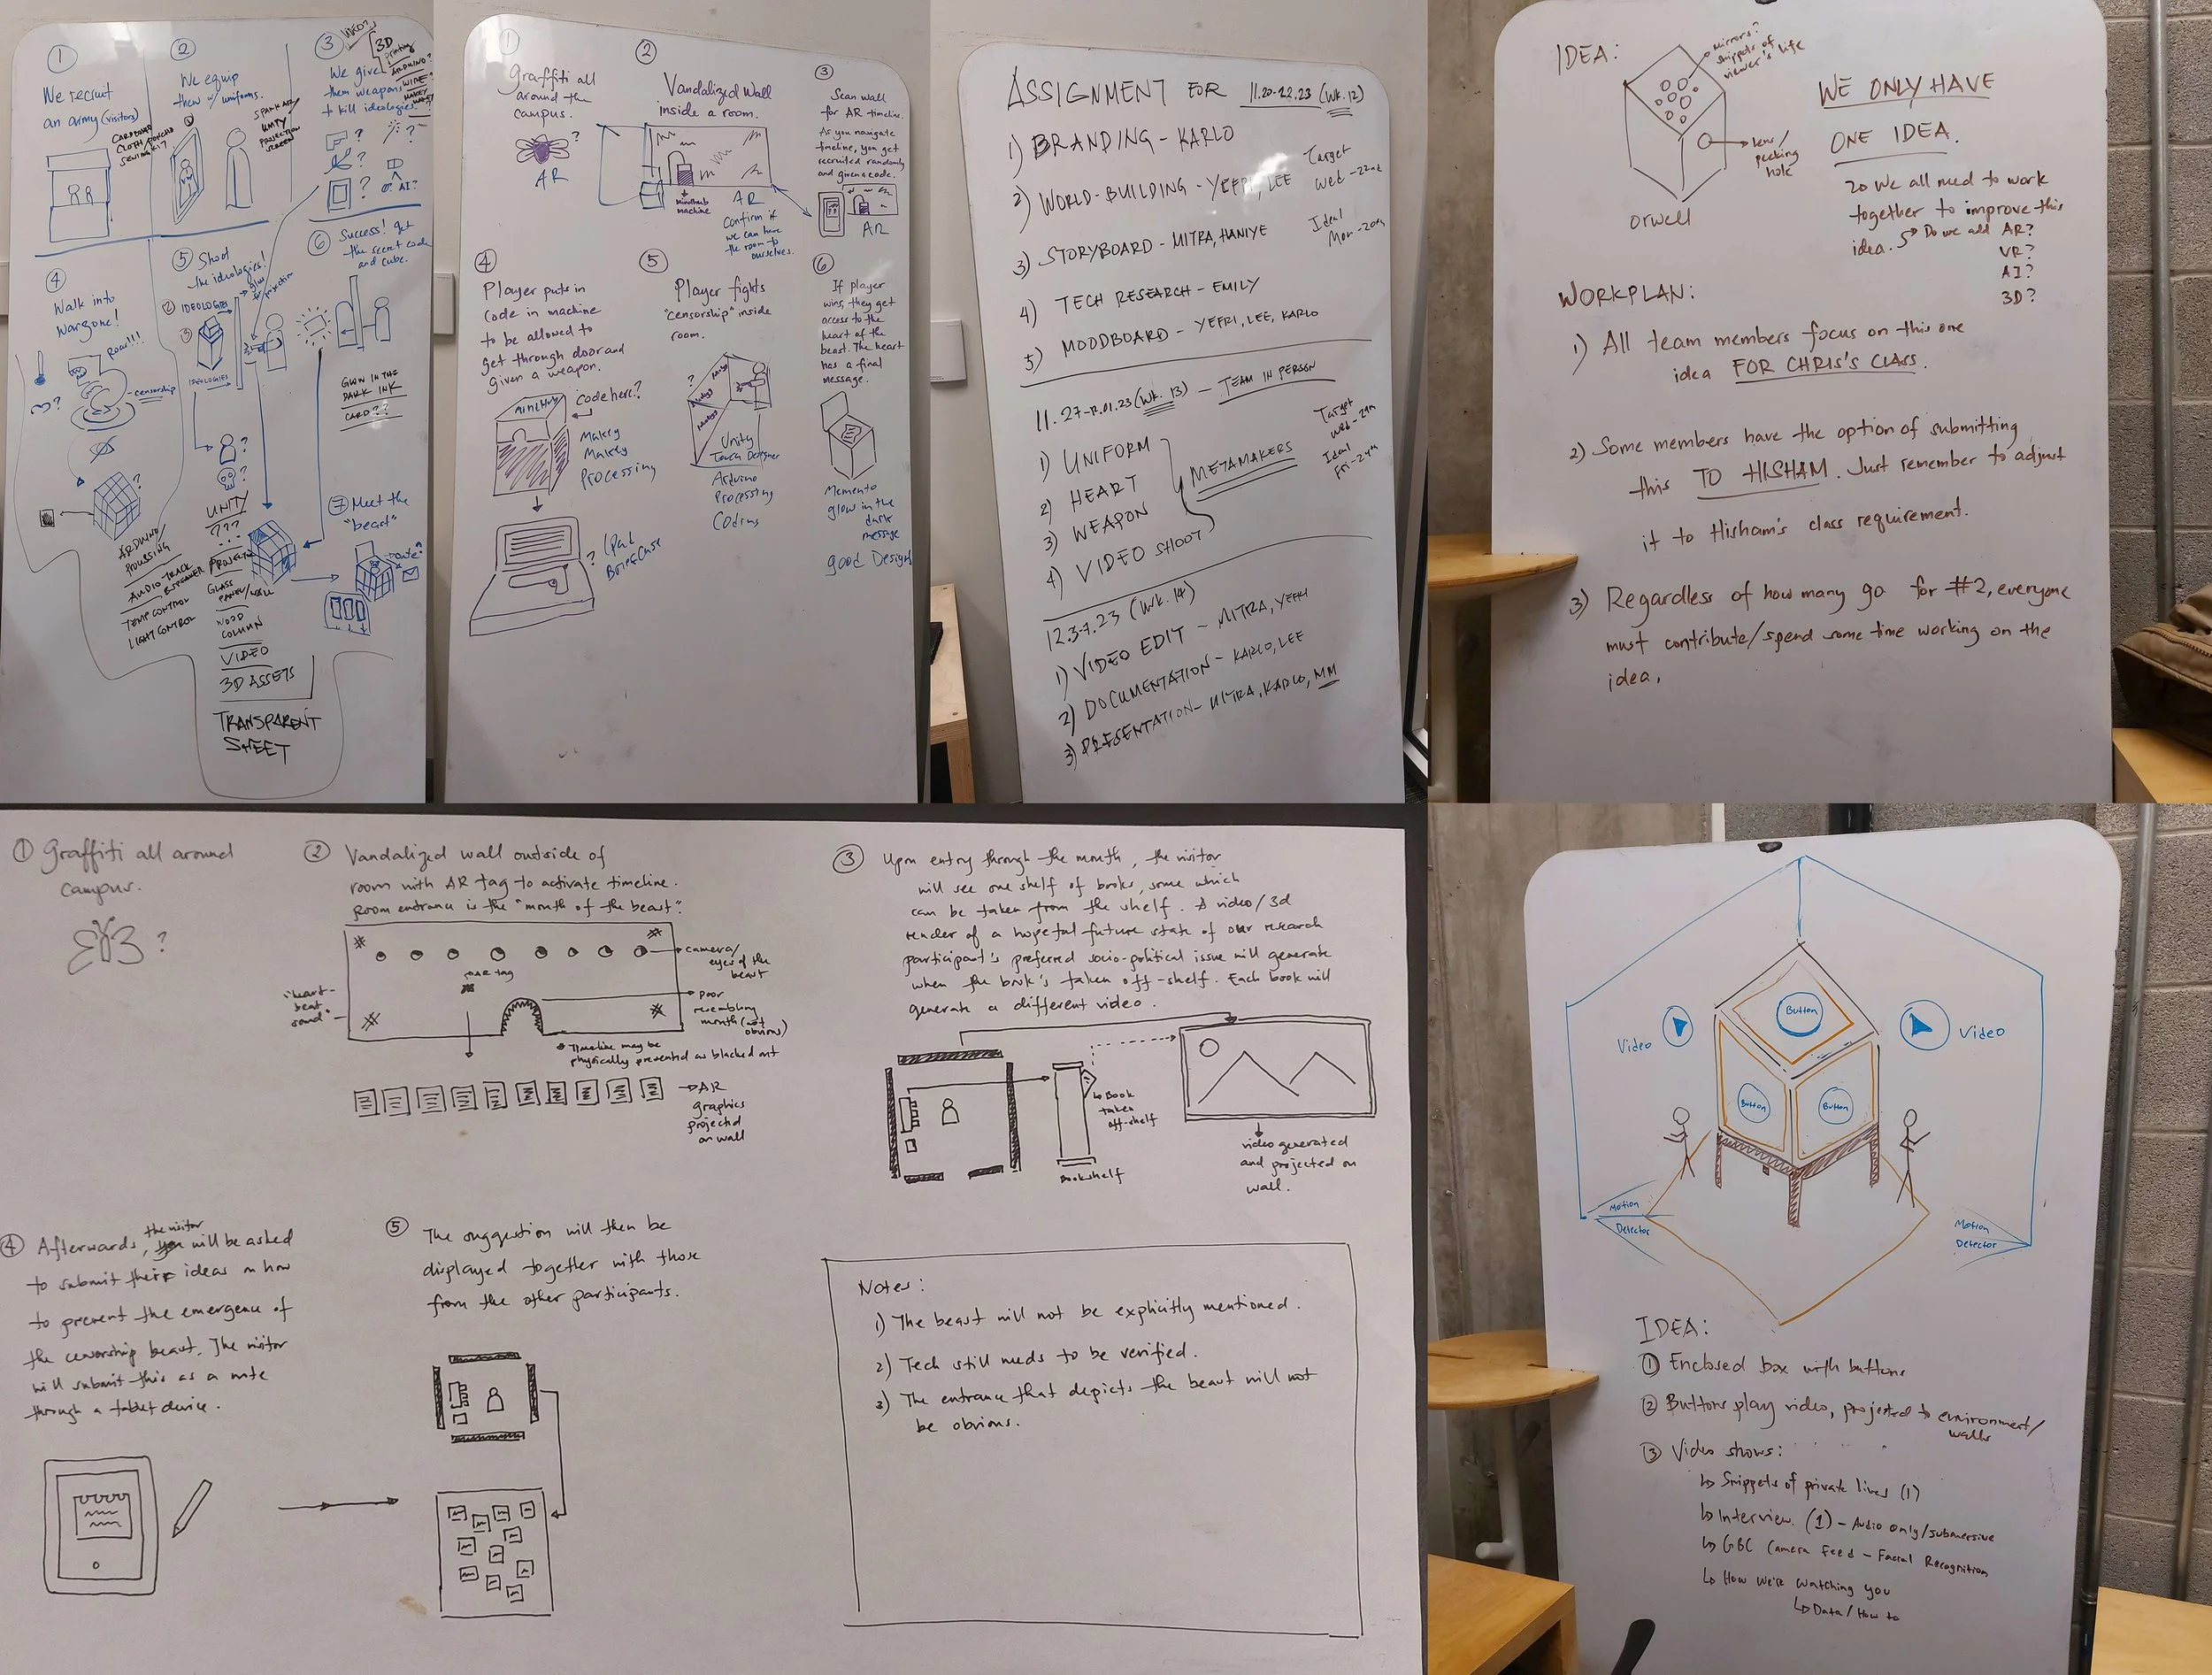 ①
We recruit
an army (visitors)
CARDBOARD
CLOTH/PONCHO
SEWING KIT
②
We equip
them w/ uniforms.
SPARK AR/
UNITY
PROJECTION
SCREEN
③
VIDEO?
3D
Printing
ARDUINO?
WIRE?
MAKEY
MAKEY
We give
them weapons
to kill ideologies!
?
?
?
?
or AI?
④
Walk into
warzone!
Roar!!!
censorship
?
?
ARDUINO/
AUDIO TRACK
TEMP CONTROL
LIGHT CONTROL
⑤ Shoot
the ideologies!
② IDEOLOGIES
③
IDEOLOGIES
?
?
UNITY
???
GLASS
WOOD
COLUMN
VIDEO
3D ASSETS
TRANSPARENT
SHEET
⑥ Success! Get
the secret code
and cube.
GLOW IN THE
DARK INK
CARD??
⑦ Meet the
"beast"
①
Graffiti all
around the
campus.
?
AR
②
Vandalized Wall
inside a room.
Mindhub
machine
AR
Confirm if
we can have
the room to
ourselves.
③
Scan wall
for AR timeline.
As you navigate
timeline, you get
recruited randomly
and given a code.
AR
④
Player puts in
code in machine
to be allowed to
get through door and
given a weapon.
MINDHUB
code here?
Makey
Makey
Processing
?
BriefCase
⑤
Player fights
"censorship" inside
room.
?
Unity
Touch Designer
Arduino
Processing
Coding
⑥
If player
wins, they get
access to the
heart of the
beast. The heart
has a final
message.
Memento
glow in the
dark
message
good Design
ASSIGNMENT FOR 11.20-22.23 (Wk.12)
1) BRANDING - KARLO
2) WORLD-BUILDING - YEFRI, LEE
3) STORYBOARD - MITRA, HANIYE
4) TECH RESEARCH - EMILY
5) MOODBOARD - YEFRI, LEE, KARLO
Target
Wed - 22nd
Ideal
Mon - 20th
11.27-12.01.23 (Wk. 13) - TEAM IN PERSON
1) UNIFORM
2) HEART
3) WEAPON
4) VIDEO SHOOT
METAMAKERS
Target
Wed - 29th
Ideal
Fri - 24th
12.3-7.23 (Wk. 14)
1) VIDEO EDIT - MITRA, YEFRI
2) DOCUMENTATION - KARLO, LEE
3) PRESENTATION - MITRA, KARLO, MM
IDEA:
Mirrors?
snippets of
viewer's life
lens/
peeking
hole
orwell
WE ONLY HAVE
ONE IDEA.
↳ We all need to work
together to improve this
idea. ↳ Do we add AR?
VR?
AI?
3D?
WORKPLAN:
1) All team members focus on this one
idea FOR CHRIS'S CLASS.
2) Some members have the option of submitting
this TO HISHAM. Just remember to adjust
it to Hisham's class requirement.
3) Regardless of how many go for #2, everyone
must contribute/spend some time working on the
idea.
① Graffiti all around
campus.
?
② Vandalized wall outside of
room with AR tag to activate timeline.
Room entrance is the "mouth of the beast".
camera/
eyes of the
beast
AR tag
"heart-
beat
sound"
Door
resembling
mouth (not
obvious)
Timeline may be
physically presented as blacked out
→ AR
graphics
projected
on wall
③ Upon entry through the mouth, the visitor
will see one shelf of books, some which
can be taken from the shelf. A video/3d
render of a hopeful future state of our research
participant's preferred socio-political issue will generate
when the book's taken off-shelf. Each book will
generate a different video.
↳ Book
taken
off-shelf
Bookshelf
video generated
and projected on
wall.
④ Afterwards, the visitor will be asked
to submit their ideas on how
to prevent the emergence of
the censorship beast. The visitor
will submit this as a note
through a tablet device.
⑤ The suggestion will then be
displayed together with those
from the other participants.
Notes:
1) The beast will not be explicitly mentioned.
2) Tech still needs to be verified.
3) The entrance that depicts the beast will not
be obvious.
Button
Video
Video
Button
Button
Motion
Detector
Motion
Detector
IDEA:
① Enclosed box with buttons
② Buttons play video, projected to environment/
walls
③ Video shows:
↳ Snippets of private lives (1)
↳ Interview (1) - Audio only/submersive
↳ GBC Camera Feed - Facial Recognition
↳ How we're watching you
↳ Data / How to